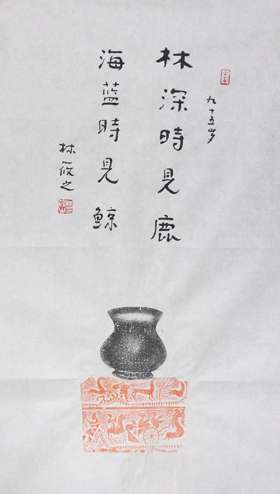 九十五岁
林深時見鹿
海蓝時見鲸
林筱之